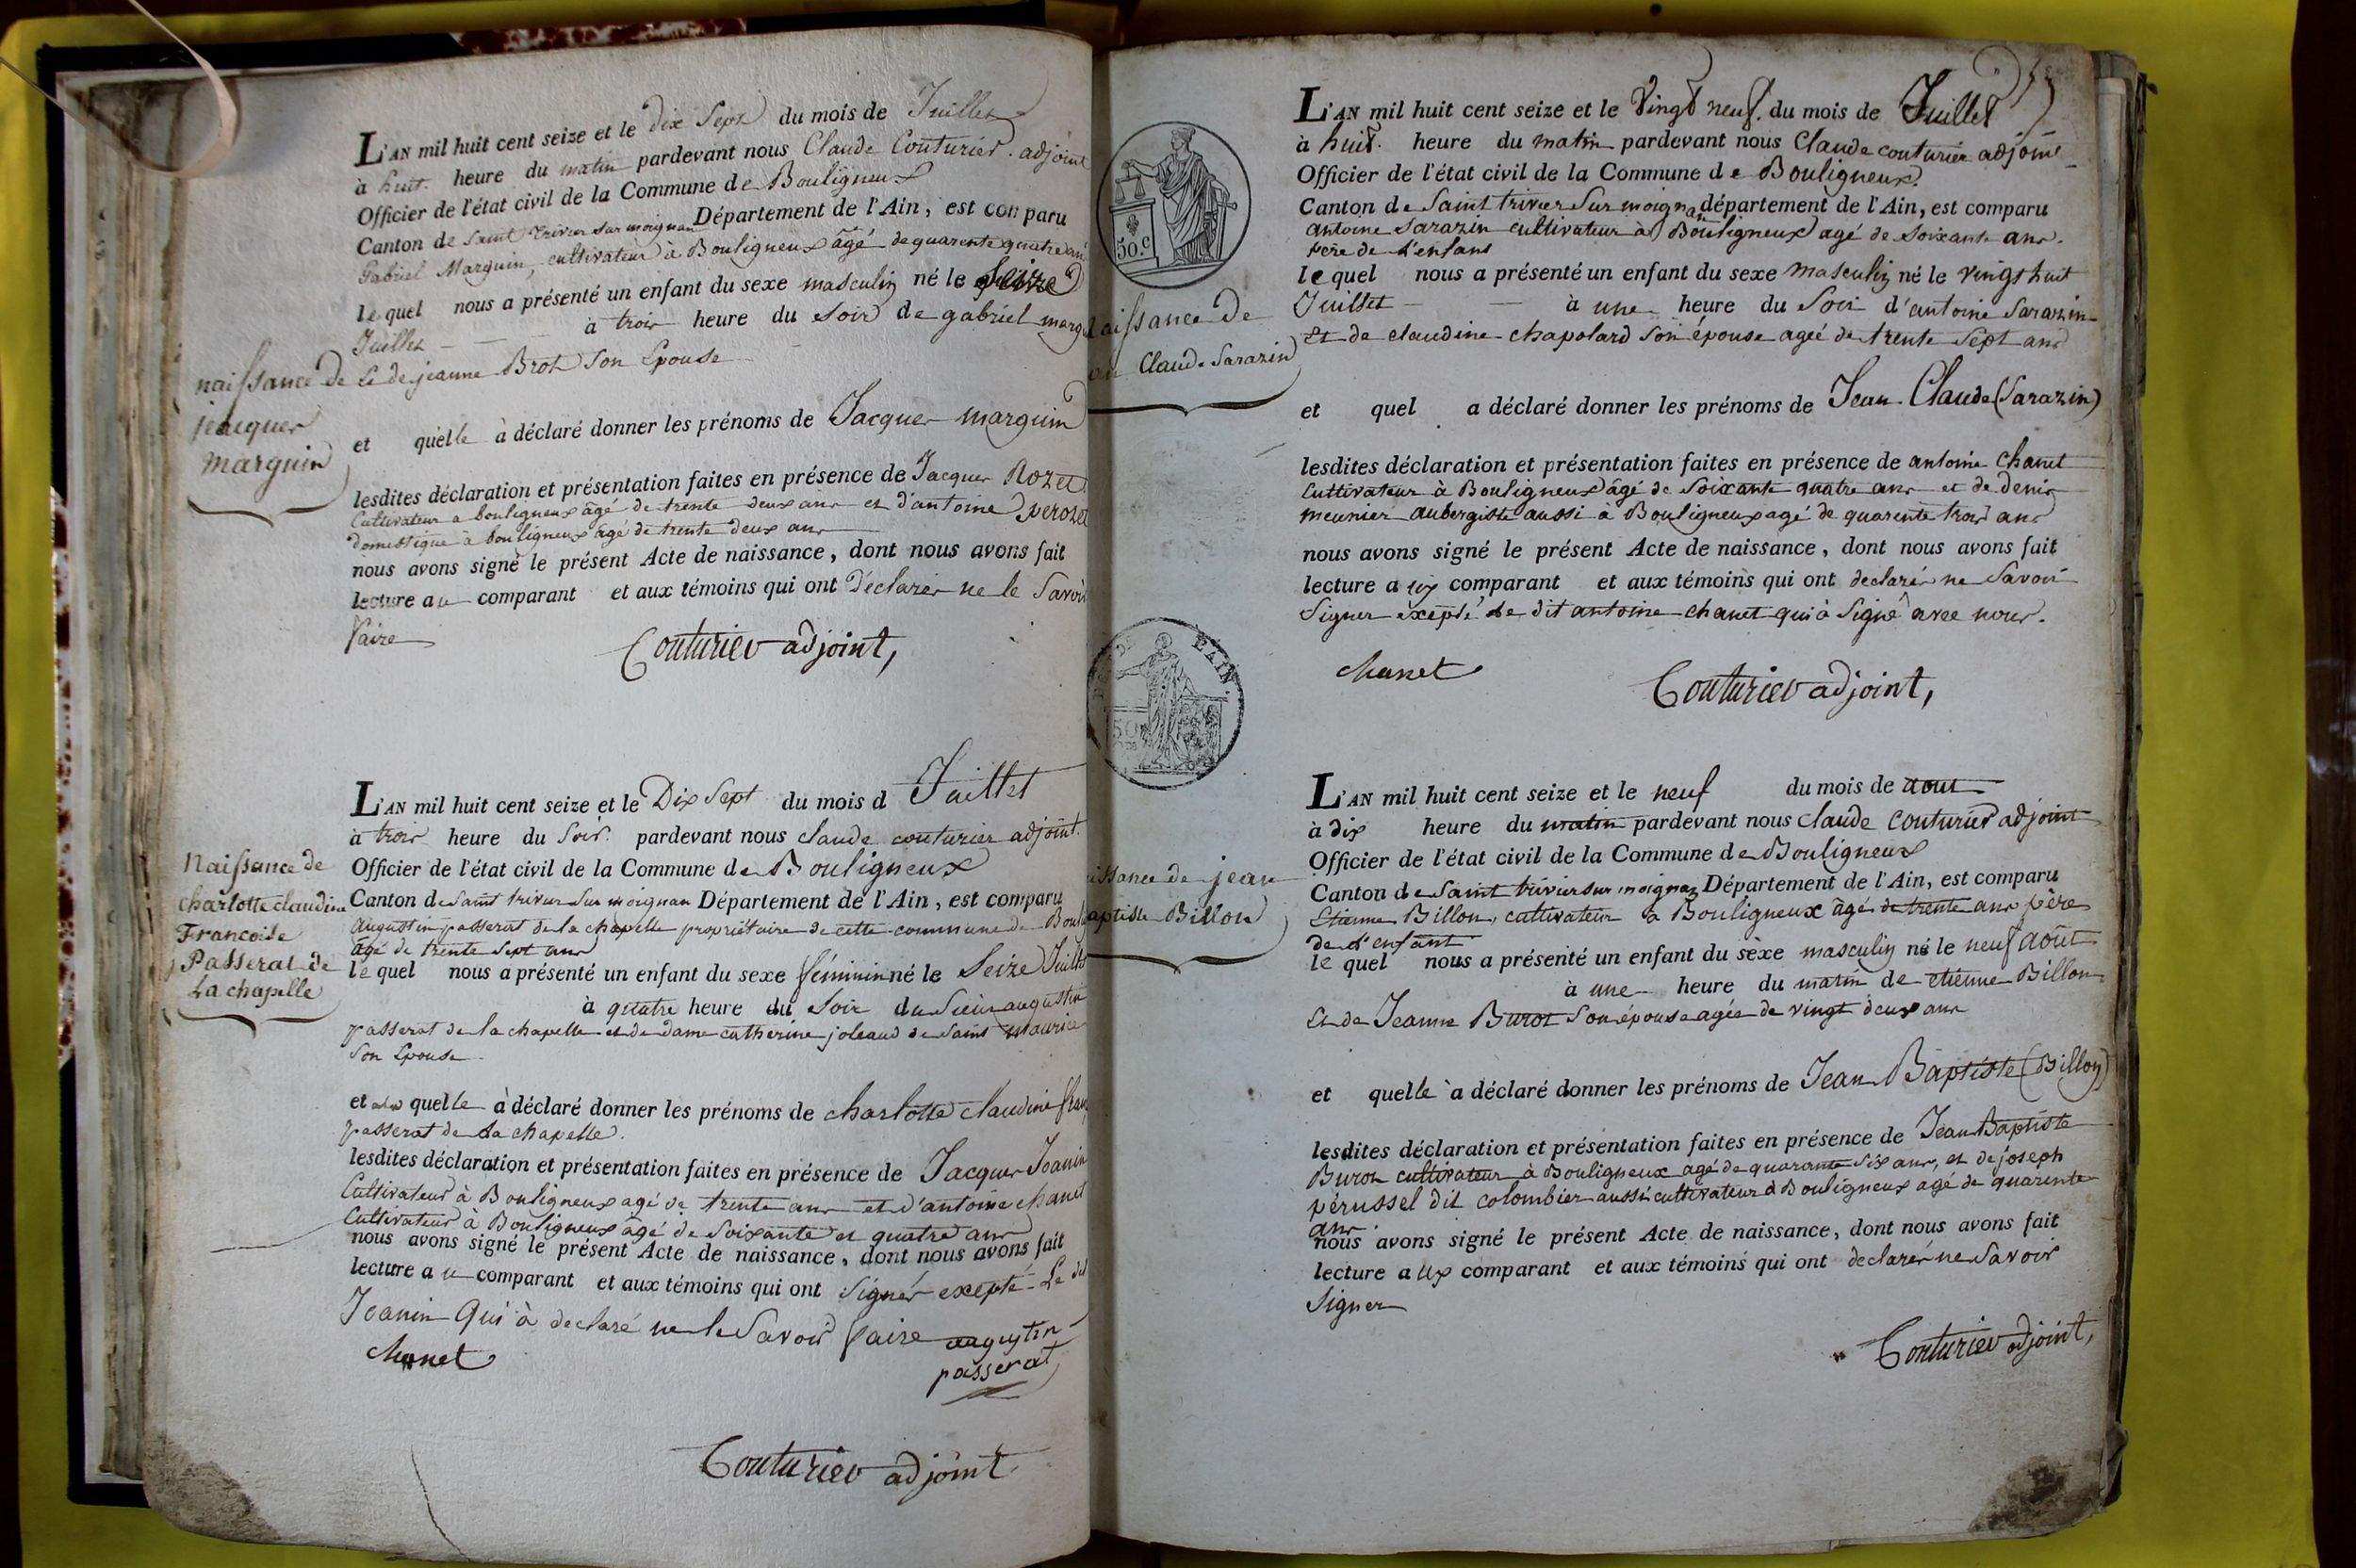 L'AN mil huit cent seize et le dix Sept du mois de Juillet
à huit heure du matin pardevant nous Claude Couturier adjoint
Officier de l'état civil de la Commune de Bouligneux
Canton de Saint trivier Sur moignan Département de l'Ain, est comparu
Gabriel Marguin, cultivateur à Bouligneux âgé de quarente quatre an
le quel nous a présenté un enfant du sexe masculin né le Seize
Juillet à trois heure du Soir de gabriel margu
naissance de
jacques
marguin
Et de jeanne Brot Son Epouse
et qu'elle à déclaré donner les prénoms de Jacques marguin
lesdites déclaration et présentation faites en présence de Jacques Rozet
Cultivateur a bouligneux âgé de trente deux ans et d'antoine
domestique a bouligneux âgé de trente deux ans
nous avons signé le présent Acte de naissance, dont nous avons fait
lecture au comparant et aux témoins qui ont Déclarer ne le Savoir
faire
Couturier adjoint,
L'AN mil huit cent seize et le Dix Sept du mois d Juillet
à trois heure du Soir pardevant nous claude couturier adjoint
Officier de l'état civil de la Commune de Bouligneux
Naissance de
charlotte claudine
Francoise
Passerat de
La chapelle
Canton de Saint trivier Sur moignan Département de l'Ain, est comparu
Augustin passerat de la chapelle propriétaire de cette commune de Boul
âgé de trente Sept ans
le quel nous a présenté un enfant du sexe féminin né le Seize Juillet
à quatre heure du Soir du Sieur augustin
passerat de la chapelle et de dame catherine joleaud de Saint maurice
Son Epouse
et quelle à déclaré donner les prénoms de charlotte claudine fran
passerat de la chapelle.
lesdites déclaration et présentation faites en présence de Jacques Joanin
Cultivateur à Bouligneux agé de trente ans et d'antoine chanet
Cultivateur à Bouligneux âgé de Soixante et quatre ans
nous avons signé le présent Acte de naissance, dont nous avons fait
lecture au comparant et aux témoins qui ont Signér excepté Le dit
Joanin Qui à declaré ne le Savoir faire augustin
chanet passerat
Couturier adjoint
L'AN mil huit cent seize et le Vingt neuf du mois de Juillet
à huit heure du matin pardevant nous Claude couturier adjoint
Officier de l'état civil de la Commune de Bouligneux
Canton de Saint trivier Sur moignan département de l'Ain, est comparu
antoine Sarazin cultivateur à Bouligneux agé de Soixante ans.
père de l'enfant
50.c
le quel nous a présenté un enfant du sexe masculin né le vingt huit
Juillet à une heure du Soir d'antoine Sarazin
Et de claudine chapolard Son épouse ageé de trente Sept ans
aissance de
Claude Sarazin
et quel a déclaré donner les prénoms de Jean Claude (Sarazin)
lesdites déclaration et présentation faites en présence de antoine chanet
Cultivateur à Bouligneux âgé de Soixante quatre ans et de denis
meunier aubergiste aussi a Bouligneux agé de quarente trois ans
nous avons signé le présent Acte de naissance, dont nous avons fait
lecture a ux comparant et aux témoins qui ont declarér ne Savoir
Signer excepté Le dit antoine chanet qui à Signé avec nous.
chanet Couturier adjoint,
AIN.
50
L'AN mil huit cent seize et le neuf du mois de aout
à dix heure du matin pardevant nous claude couturier adjoint
Officier de l'état civil de la Commune de Bouligneux
Canton de Saint trivier sur moignan Département de l'Ain, est comparu
Etienne Billon, cultivateur a Bouligneux âgé de trente ans père
de l'enfant
issance de jean
aptiste Billon
le quel nous a présenté un enfant du sexe masculin né le neuf août
à une heure du matin de etienne Billon
Et de Jeanne Burot Son épouse agée de vingt deux ans
et quelle a déclaré donner les prénoms de Jean Baptiste (Billon)
lesdites déclaration et présentation faites en présence de Jean Baptiste
Burot cultivateur à Bouligneux agé de quarante Six ans, et de joseph
pérussel dit colombier aussi cultivateur à Bouligneux agé de quarente
ans
nous avons signé le présent Acte de naissance, dont nous avons fait
lecture a ux comparant et aux témoins qui ont declarér ne Savoir
Signer
Couturier adjoint,